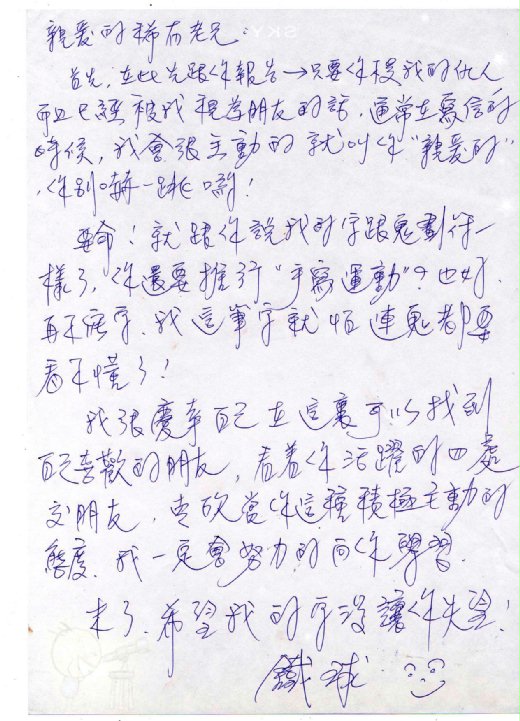 親愛的稀有老兄:
首先,在此先跟你報告→只要你授我的仇人
而且已經被我視為朋友的話,通常在寫信的
時候,我會很主動的就叫你"親愛的"
,你別嚇一跳喲!
要命!就跟你說我的字跟鬼劃符一
樣了,你還要推行"手寫運動"?也好,
再不練字,我這筆字就怕連鬼都要
看不懂了!
我很慶幸自己在這裏可以找到
自己喜歡的朋友,看著你活躍的四處
交朋友,真欣賞你這種積極主動的
態度,我一定會努力的向你學習.
末了,希望我的字沒讓你失望!
鐵球